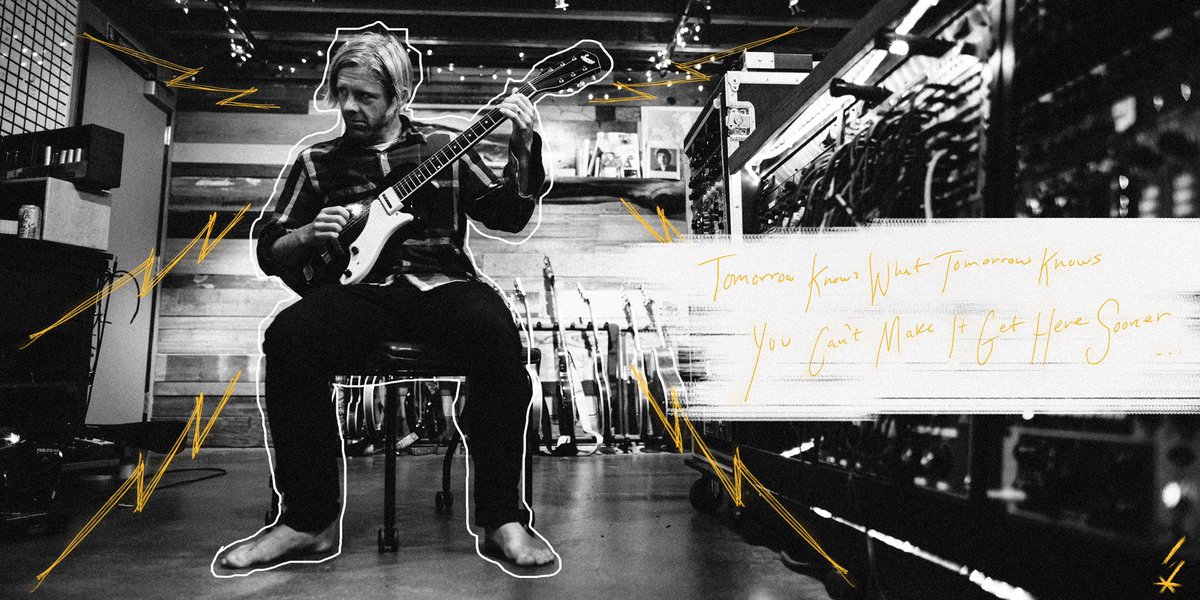 Tomorrow Knows What Tomorrow Knows
You Can't Make It Get Here Sooner ...